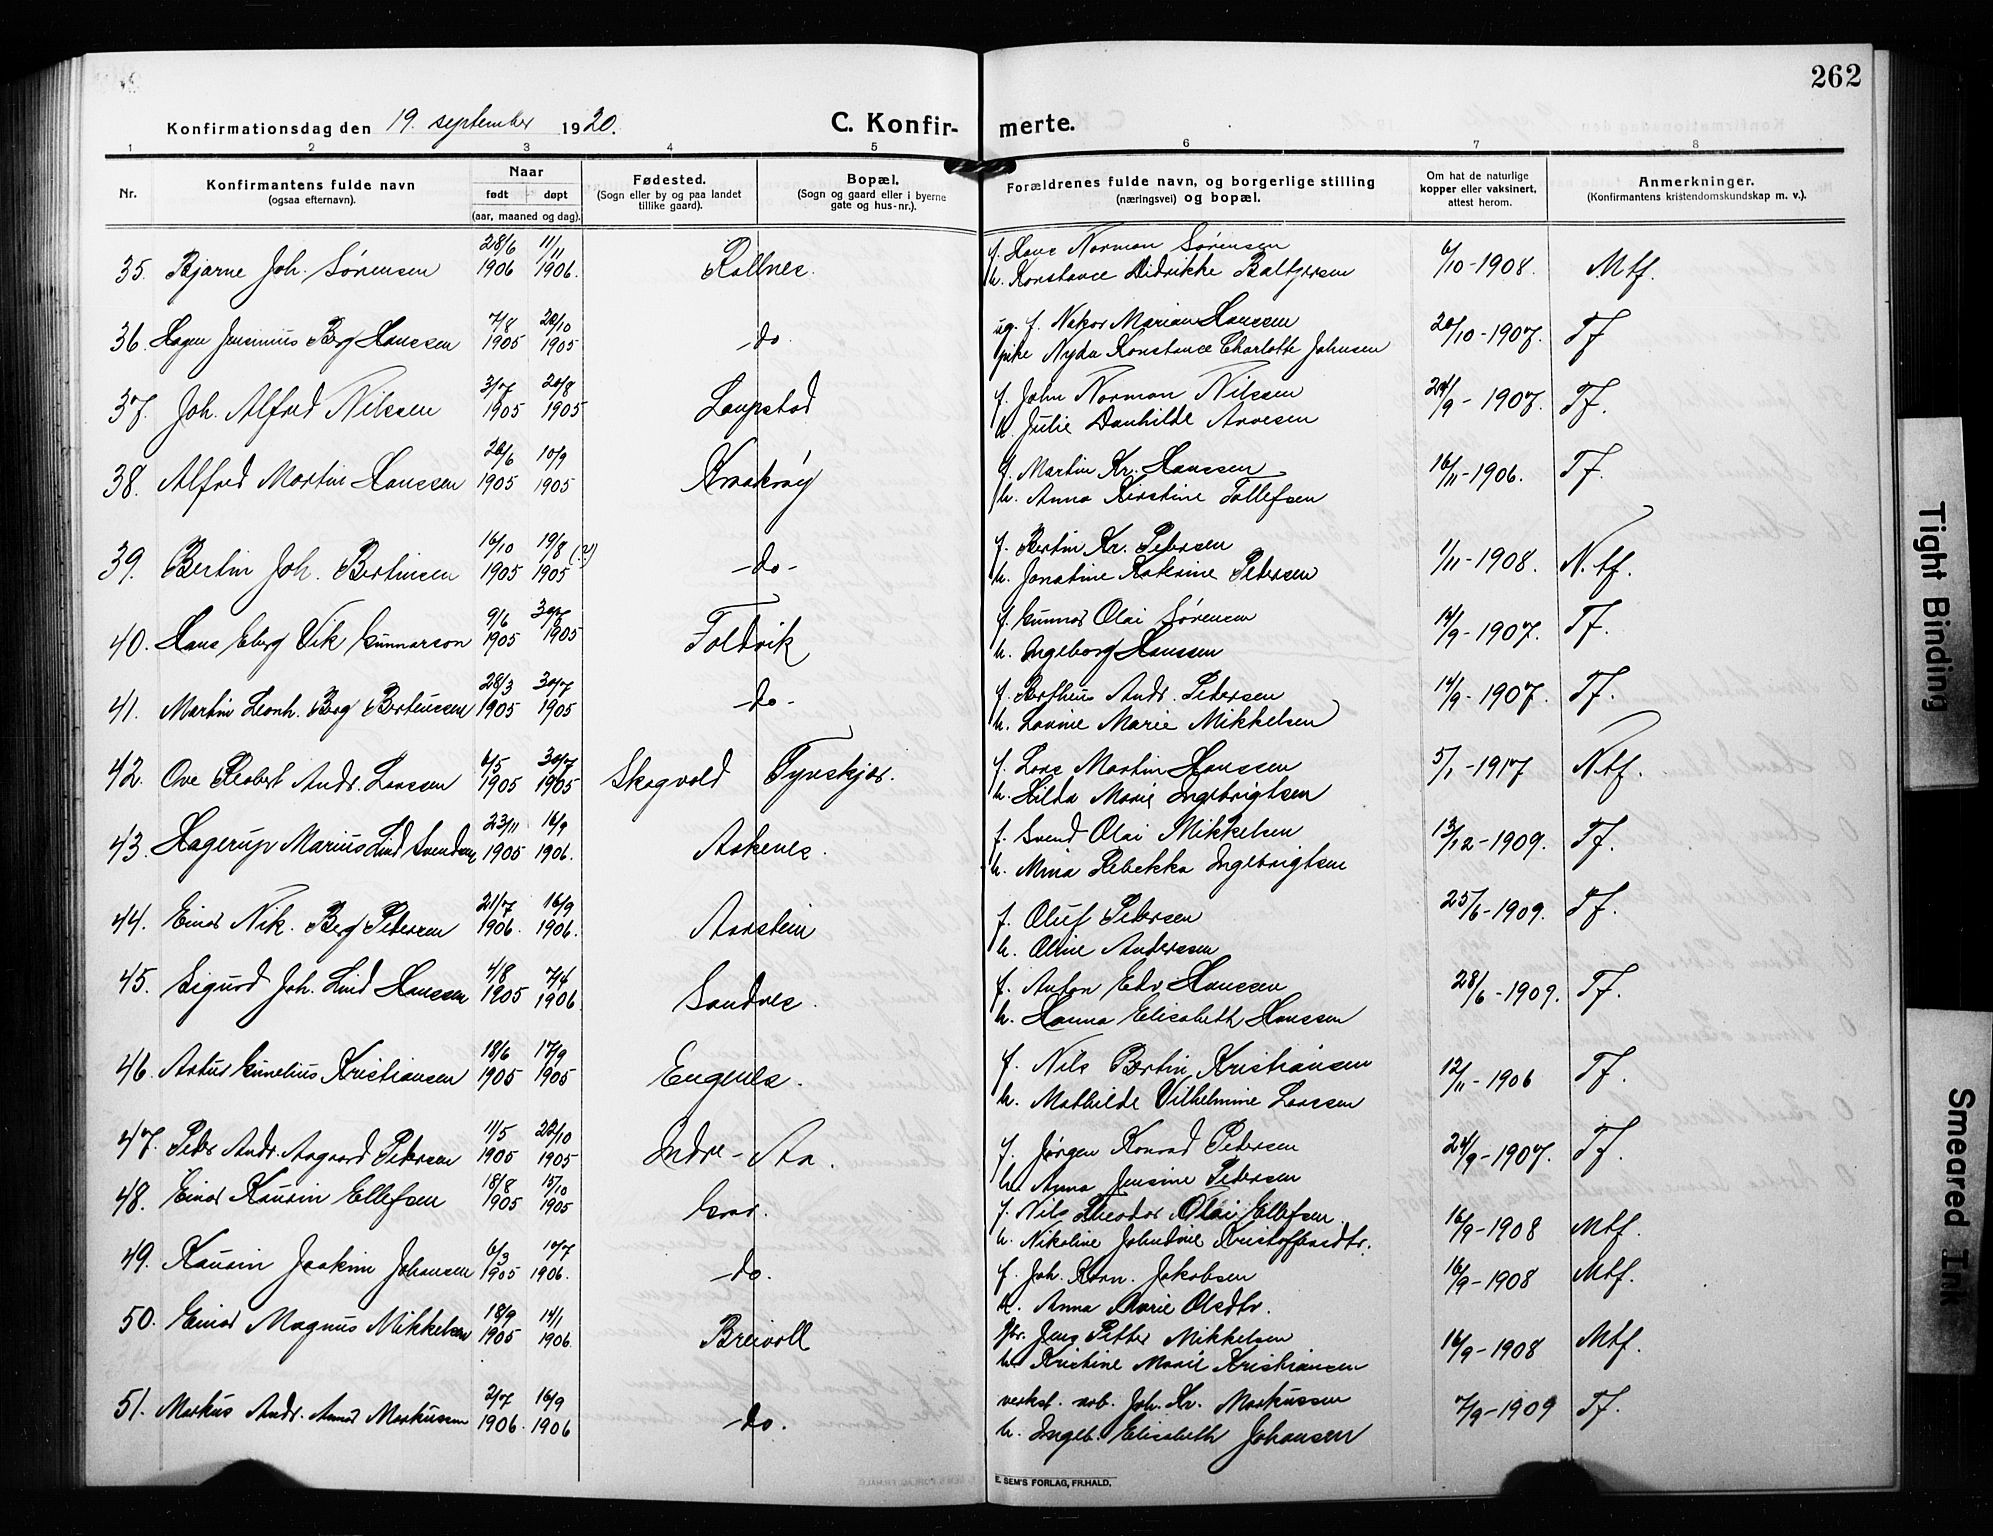 262
Konfirmationsdag den 19. september 1920.
C. Konfirmerte.
1 2 3 4 5 6 7 8
Nr. Konfirmantens fulde navn (ogsaa efternavn). Naar født døpt (aar, maaned og dag). Fødested. (Sogn eller by og paa landet tillike gaard). Bopæl. (Sogn og gaard eller i byerne gate og hus-nr.). Forældrenes fulde navn, og borgerlige stilling (næringsvei) og bopæl. Om hat de naturlige kopper eller vaksinert, attest herom. Anmerkninger. (Konfirmantens kristendomskundskap m. v.).
35. Bjarne Joh. Sørensen 28/6 1906 11/11 1906. Rollnes. f. Hans Norman Sørensen
h. Konstance Didrikke Baltzersen 6/10-1908. Mtf.
36. Hagen Jensinius Berg Hanssen 7/8 1905 20/10 1905 -do- ug. f. Nakor Marian Hanssen
pike Nyda Konstance Charlotte Johnsen 20/10-1907. Tf
37. Joh. Alfred Nilssen 3/7 1905 20/8 1905 Laupstad f. John Norman Nilssen
h. Julie Danhilde Arvesen 24/9-1907. Tf.
38. Alfred Martin Hanssen 20/6 1905 10/9 1905 Kraakrøy f. Martin Kr. Hanssen
h. Anna Kirstine Tollefsen 16/11-1906. Tf.
39. Bertin Joh. Bertinsen 16/10 1905 19/8 (?) 1905 -do- f. Bertin Kr. Petersen
h. Jonatine Katrine Petersen 1/11-1908. N.tf.
40. Hans Eberg Vik Gunnarson 9/6 1905 30/7 1905 Foldvik f. Gunnar Olai Sørensen
h. Ingeborg Hanssen 14/9-1907. Tf.
41. Martin Leonh. Berg Berteussen 28/3 1905 30/7 1905 -do- f. Bertheus Andr. Petersen
h. Lovine Marie Mikkelsen 14/9-1907. Tf.
42. Ove Robert Andr. Larssen 6/5 1905 30/7 1905 Skogvold Tynskjær. f. Lars Martin Hanssen
h. Hilda Marie Ingebrigtsen 5/1-1917 Ntf.
43. Hagerup Marius Lind Svendsen 23/11 1905 16/9 1906. Aakenes. f. Svend Olai Mikkelsen
h. Mina Rebekka Ingebrigtsen 13/12-1909. Tf.
44. Einar Nik. Berg Petersen 21/7 1906. 16/9 1906. Aarstein f. Oluf Petersen
h. Oline Anderssen 25/6-1909. Tf.
45. Sigurd Joh. Lind Hanssen 4/8 1905 7/4 1906. Sandnes. f. Anton Edv Hanssen
h. Hanna Elisabeth Hanssen 28/6-1909. Tf.
46. Artur Gunelius Kristiansen 18/6 1905 17/9 1905 Engenes. f. Nils Bertin Kristiansen
h. Mathilde Vilhelmine Larssen 12/11-1906 Tf.
47. Peder Andr. Aagaard Petersen 11/5 1905 22/10 1905 Indre-Aa. f. Jørgen Konrad Petersen
h. Anna Jensine Petersen 24/9-1907. Tf.
48. Einar Kausin Ellefsen 18/8 1905 15/10 1905 Grov. f. Nils Theodor Olai Ellefsen.
h. Nikoline Johndine Kristoffersdtr. 16/9-1908 Mtf.
49. Kausin Joakim Johansen 6/3 1905 10/7 1906. -do. f. Joh. Korn. Jakobsen
h. Anna Marie Olsdtr. 16/9-1908 Mtf.
50. Einar Magnus Mikkelsen 18/9 1905 14/1 1906. Breivoll gbr. Jens Petter Mikkelsen
h. Kristine Marie Kristiansen 16/9-1908 Mtf.
51. Markus Andr. Annar Markussen 2/7 1906. 16/9 1906 -do. verkst. arb. Joh. Kr. Markussen
h. Ingeb. Elisabeth Johansen 7/9-1909 Tf.
E. SEM'S FORLAG, FR.HALD.
Tight Binding
Smeared Ink